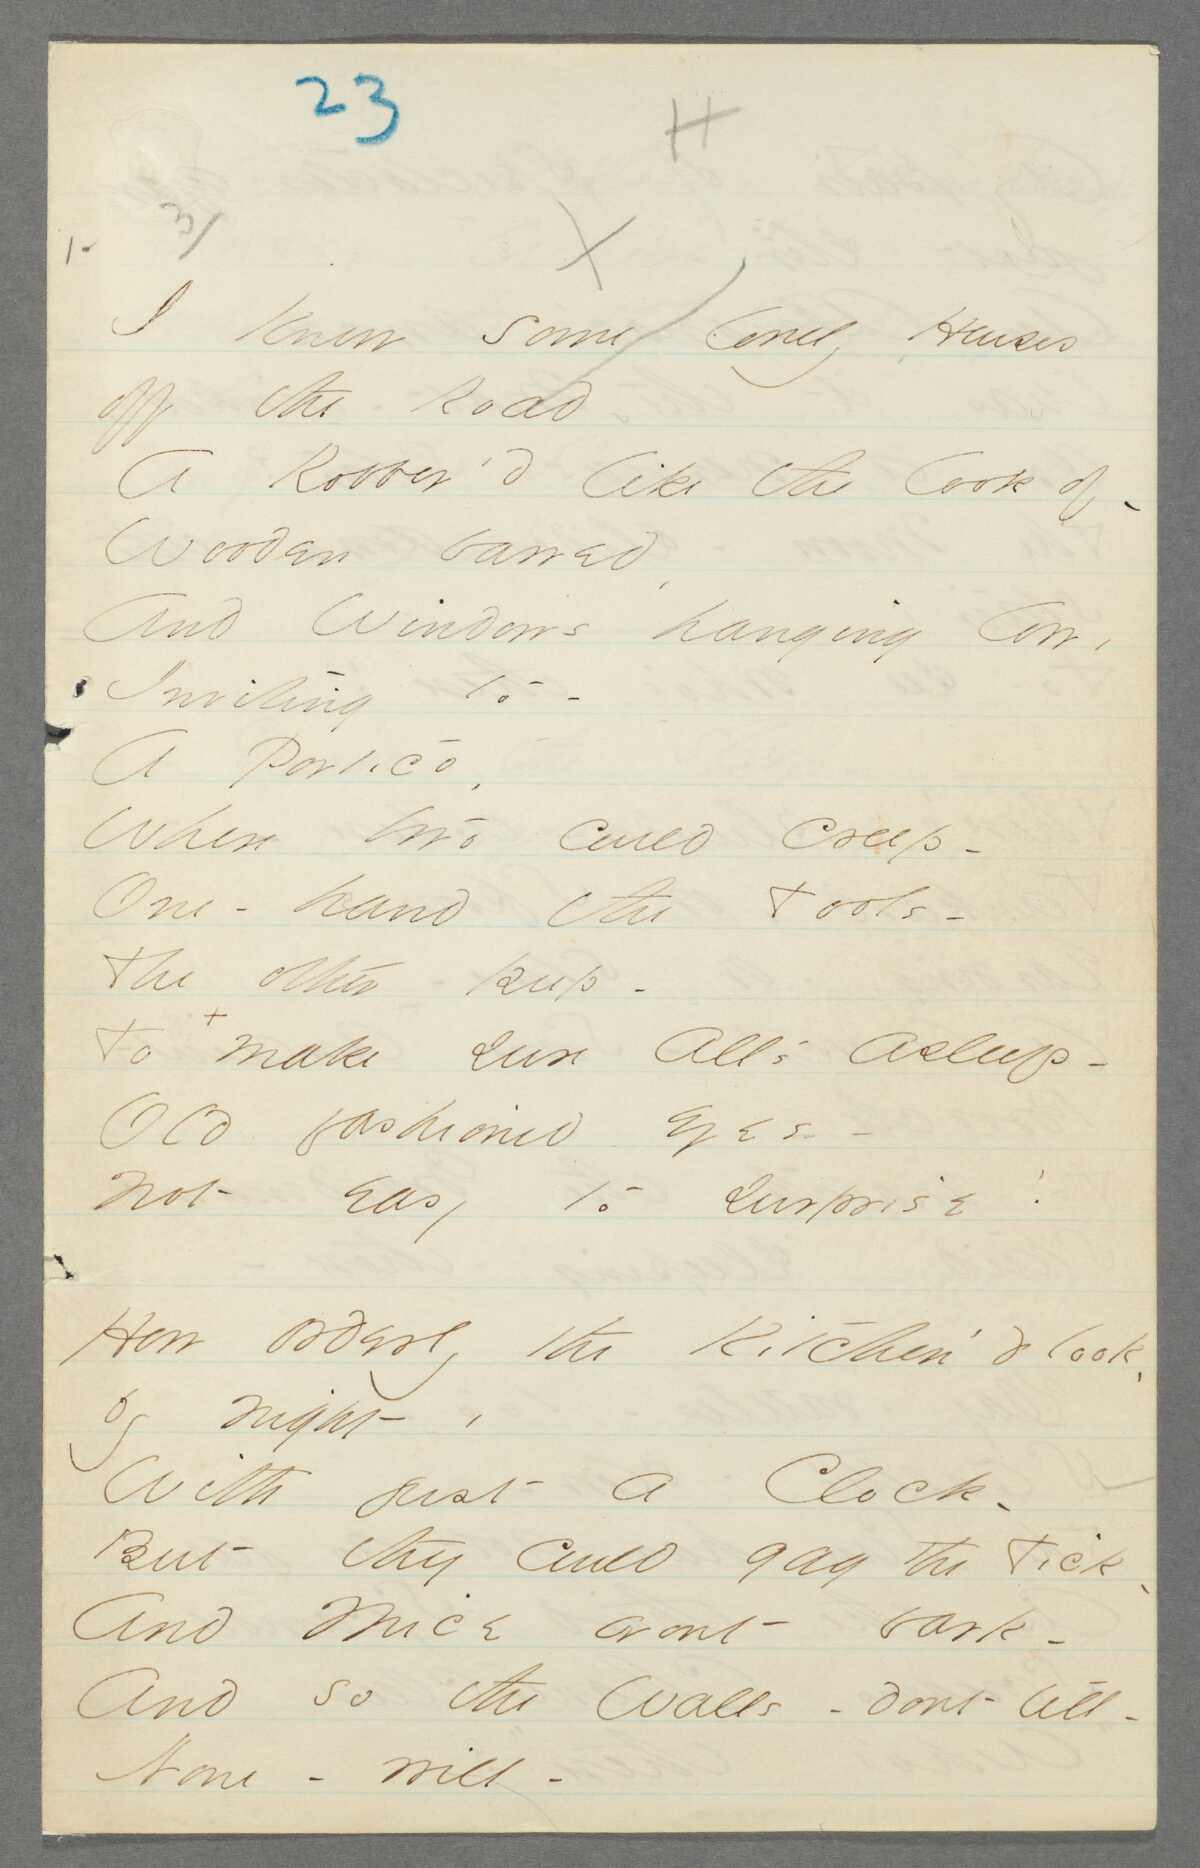 23
H
X
1- 31
I know some lonely Houses
off the Road
A Robber'd like the look of -
Wooden barred,
And Windows hanging low,
Inviting to -
A Portico,
Where two could creep -
One - hand the Tools -
The other - peep -
To + make sure All's asleep -
Old fashioned eyes -
Not easy to surprise!
How orderly the Kitchen'd look,
by night,
With just a Clock -
But they could gag the Tick -
And Mice wont bark -
And so the Walls - dont tell -
None - will -